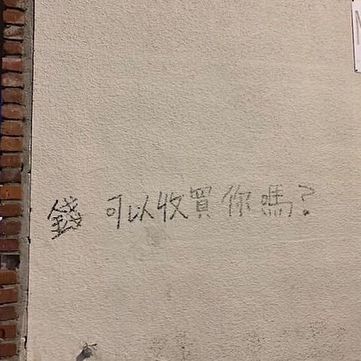 錢 可以收買你嗎?